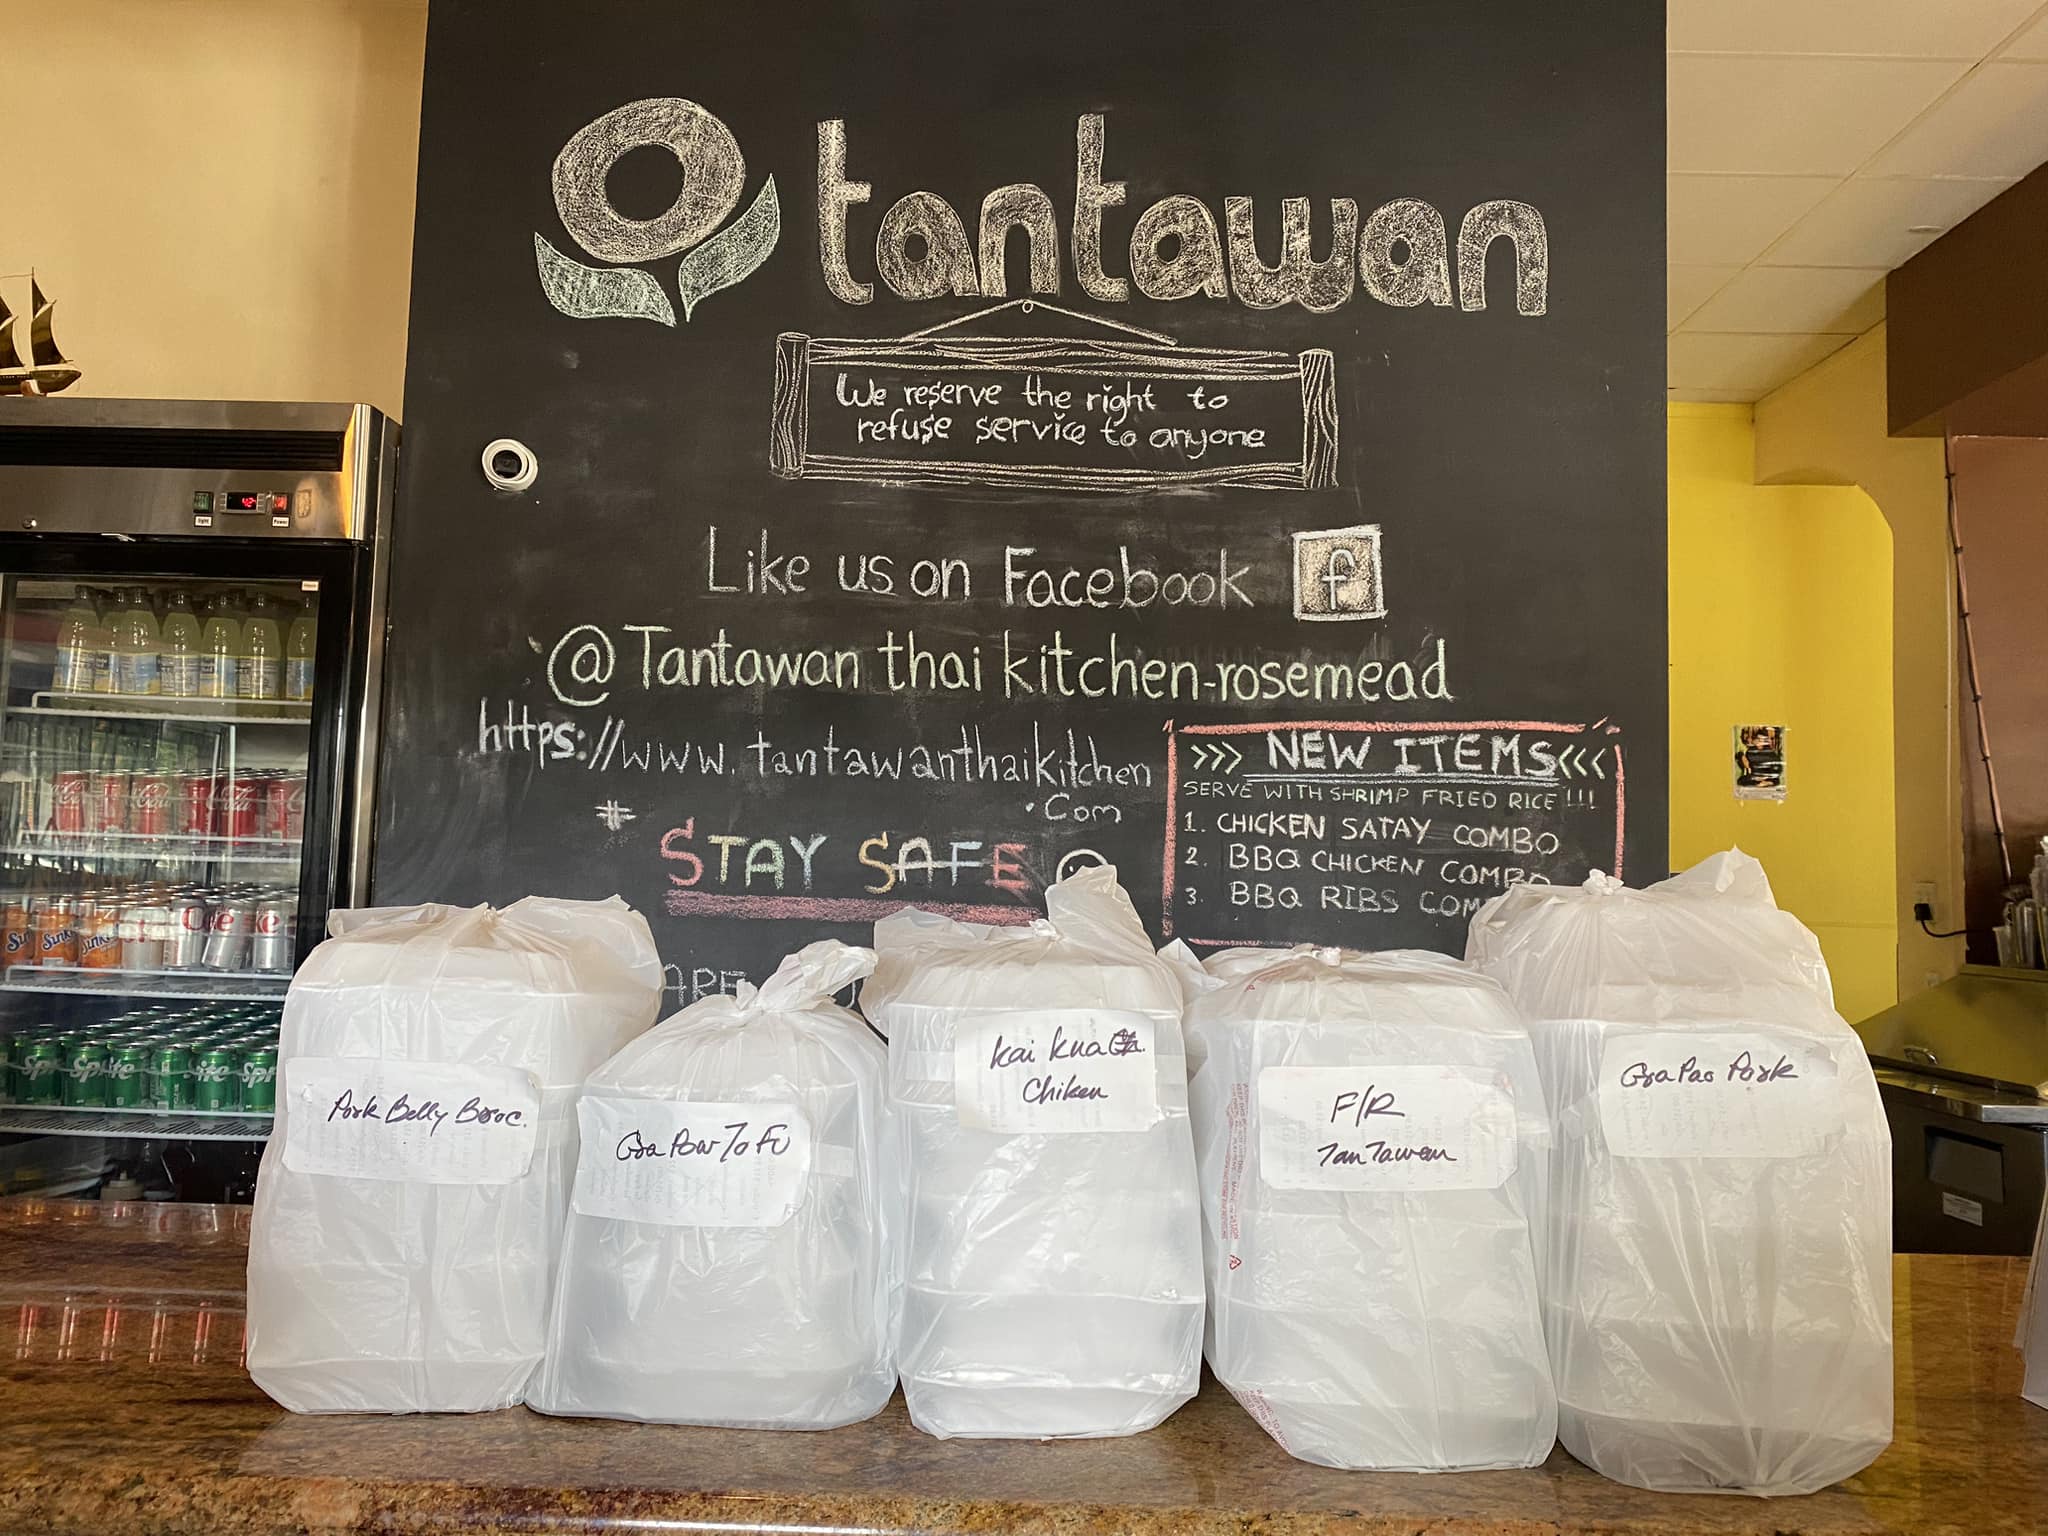 tantawan
We reserve the right to
refuse service to anyone
Like us on Facebook f
@Tantawan thai kitchen-rosemead
https://www.tantawanthaikitchen
.com
#
STAY SAFE
>>> NEW ITEMS <<<
SERVE WITH SHRIMP FRIED RICE !!!
1. CHICKEN SATAY COMBO
2. BBQ CHICKEN COMBO
3. BBQ RIBS COM
ARE
light
Power
Coca-Cola
Sunk
Coke
Sprite
Pork Belly Broc.
Gra Pow Tofu
Kai Kua
Chiken
F/R
TanTawan
Gra Pao Pork